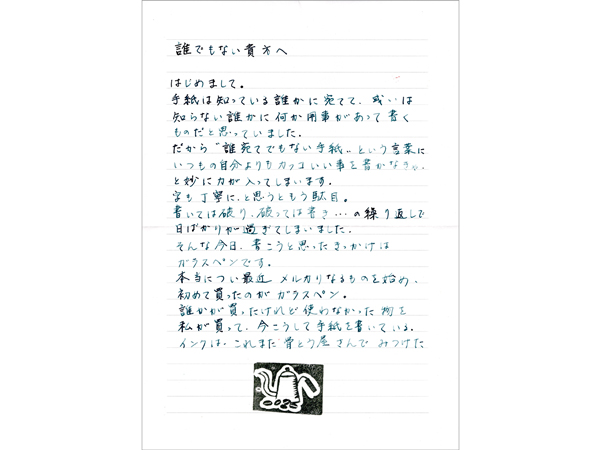 誰でもない貴方へ
はじめまして。
手紙は知っている誰かに宛てて、或いは
知らない誰かに何か用事があって書く
ものだと思っていました。
だから"誰宛てでもない手紙"という言葉に
いつもの自分よりもカッコいい事を書かなきゃ、
と妙に力が入ってしまいます。
字も丁寧に、と思うともう駄目。
書いては破り、破っては書き…の繰り返しで
日ばかりが過ぎてしまいました。
そんな今日、書こうと思ったきっかけは
ガラスペンです。
本当につい最近 メルカリなるものを始め、
初めて買ったのが ガラスペン。
誰かが買ったけれど使わなかった物を
私が買って、今こうして手紙を書いている。
インクは、これまた骨とう屋さんでみつけた